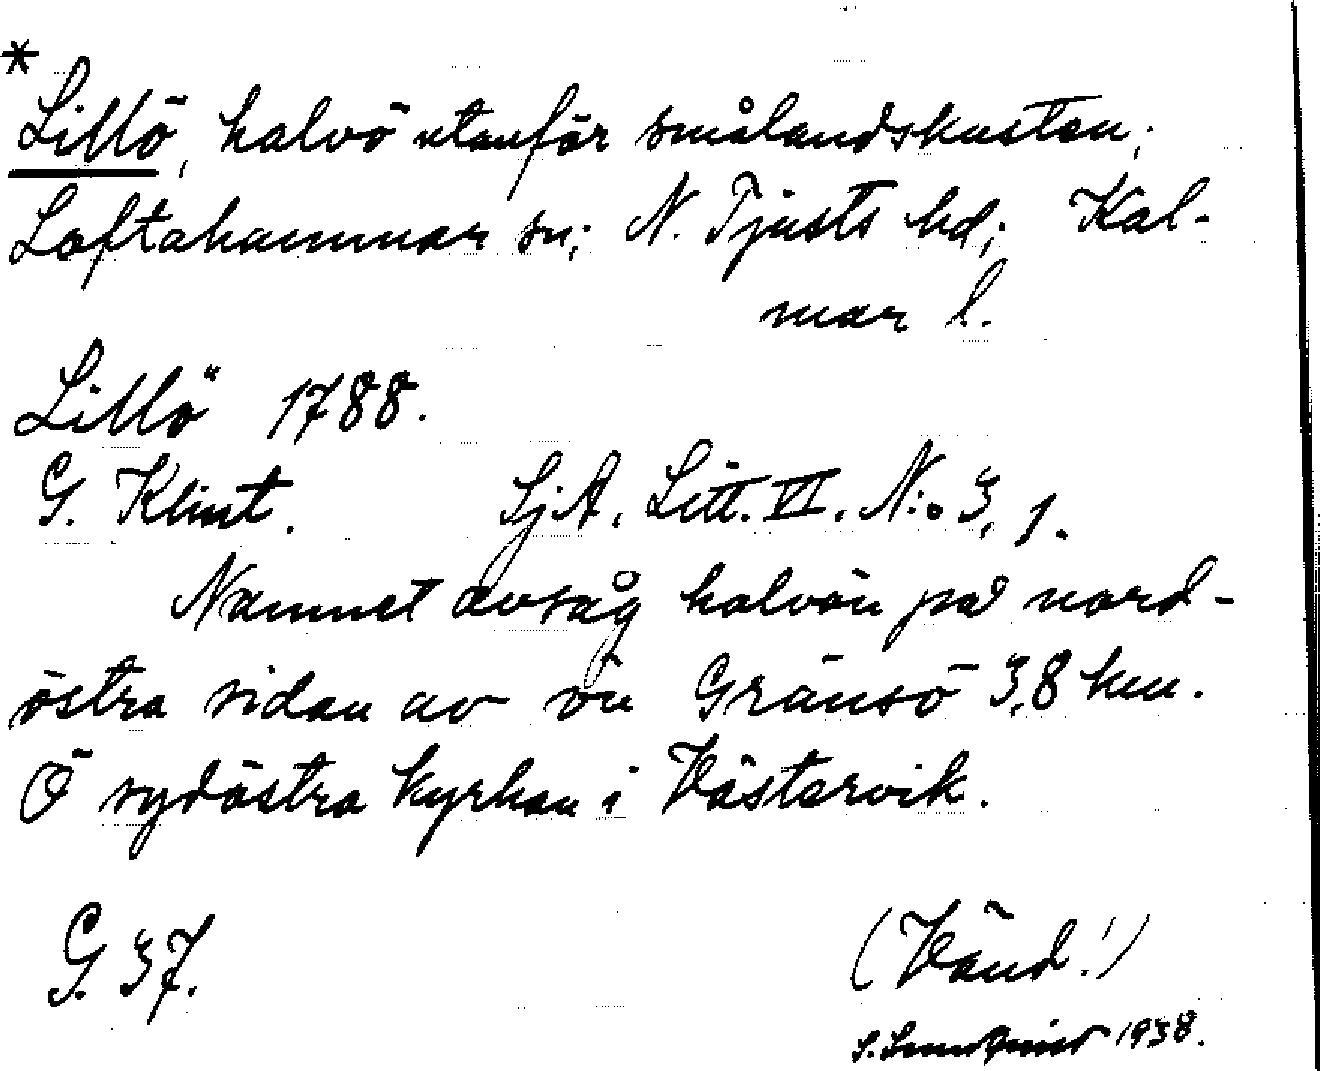 *
Lillö, halvö utanför smålandskusten;
Loftahammar sn; N. Tjusts hd; Kal-
mar l.
Lillö 1788.
G. Klint. SjA, Litt. VI. N:o 3, 1.
Namnet avsåg halvön på nord-
östra sidan av ön Gränsö 3,8 km.
Ö sydöstra kyrkan i Västervik.
G. 37.
(Vänd!)
S. 1938.